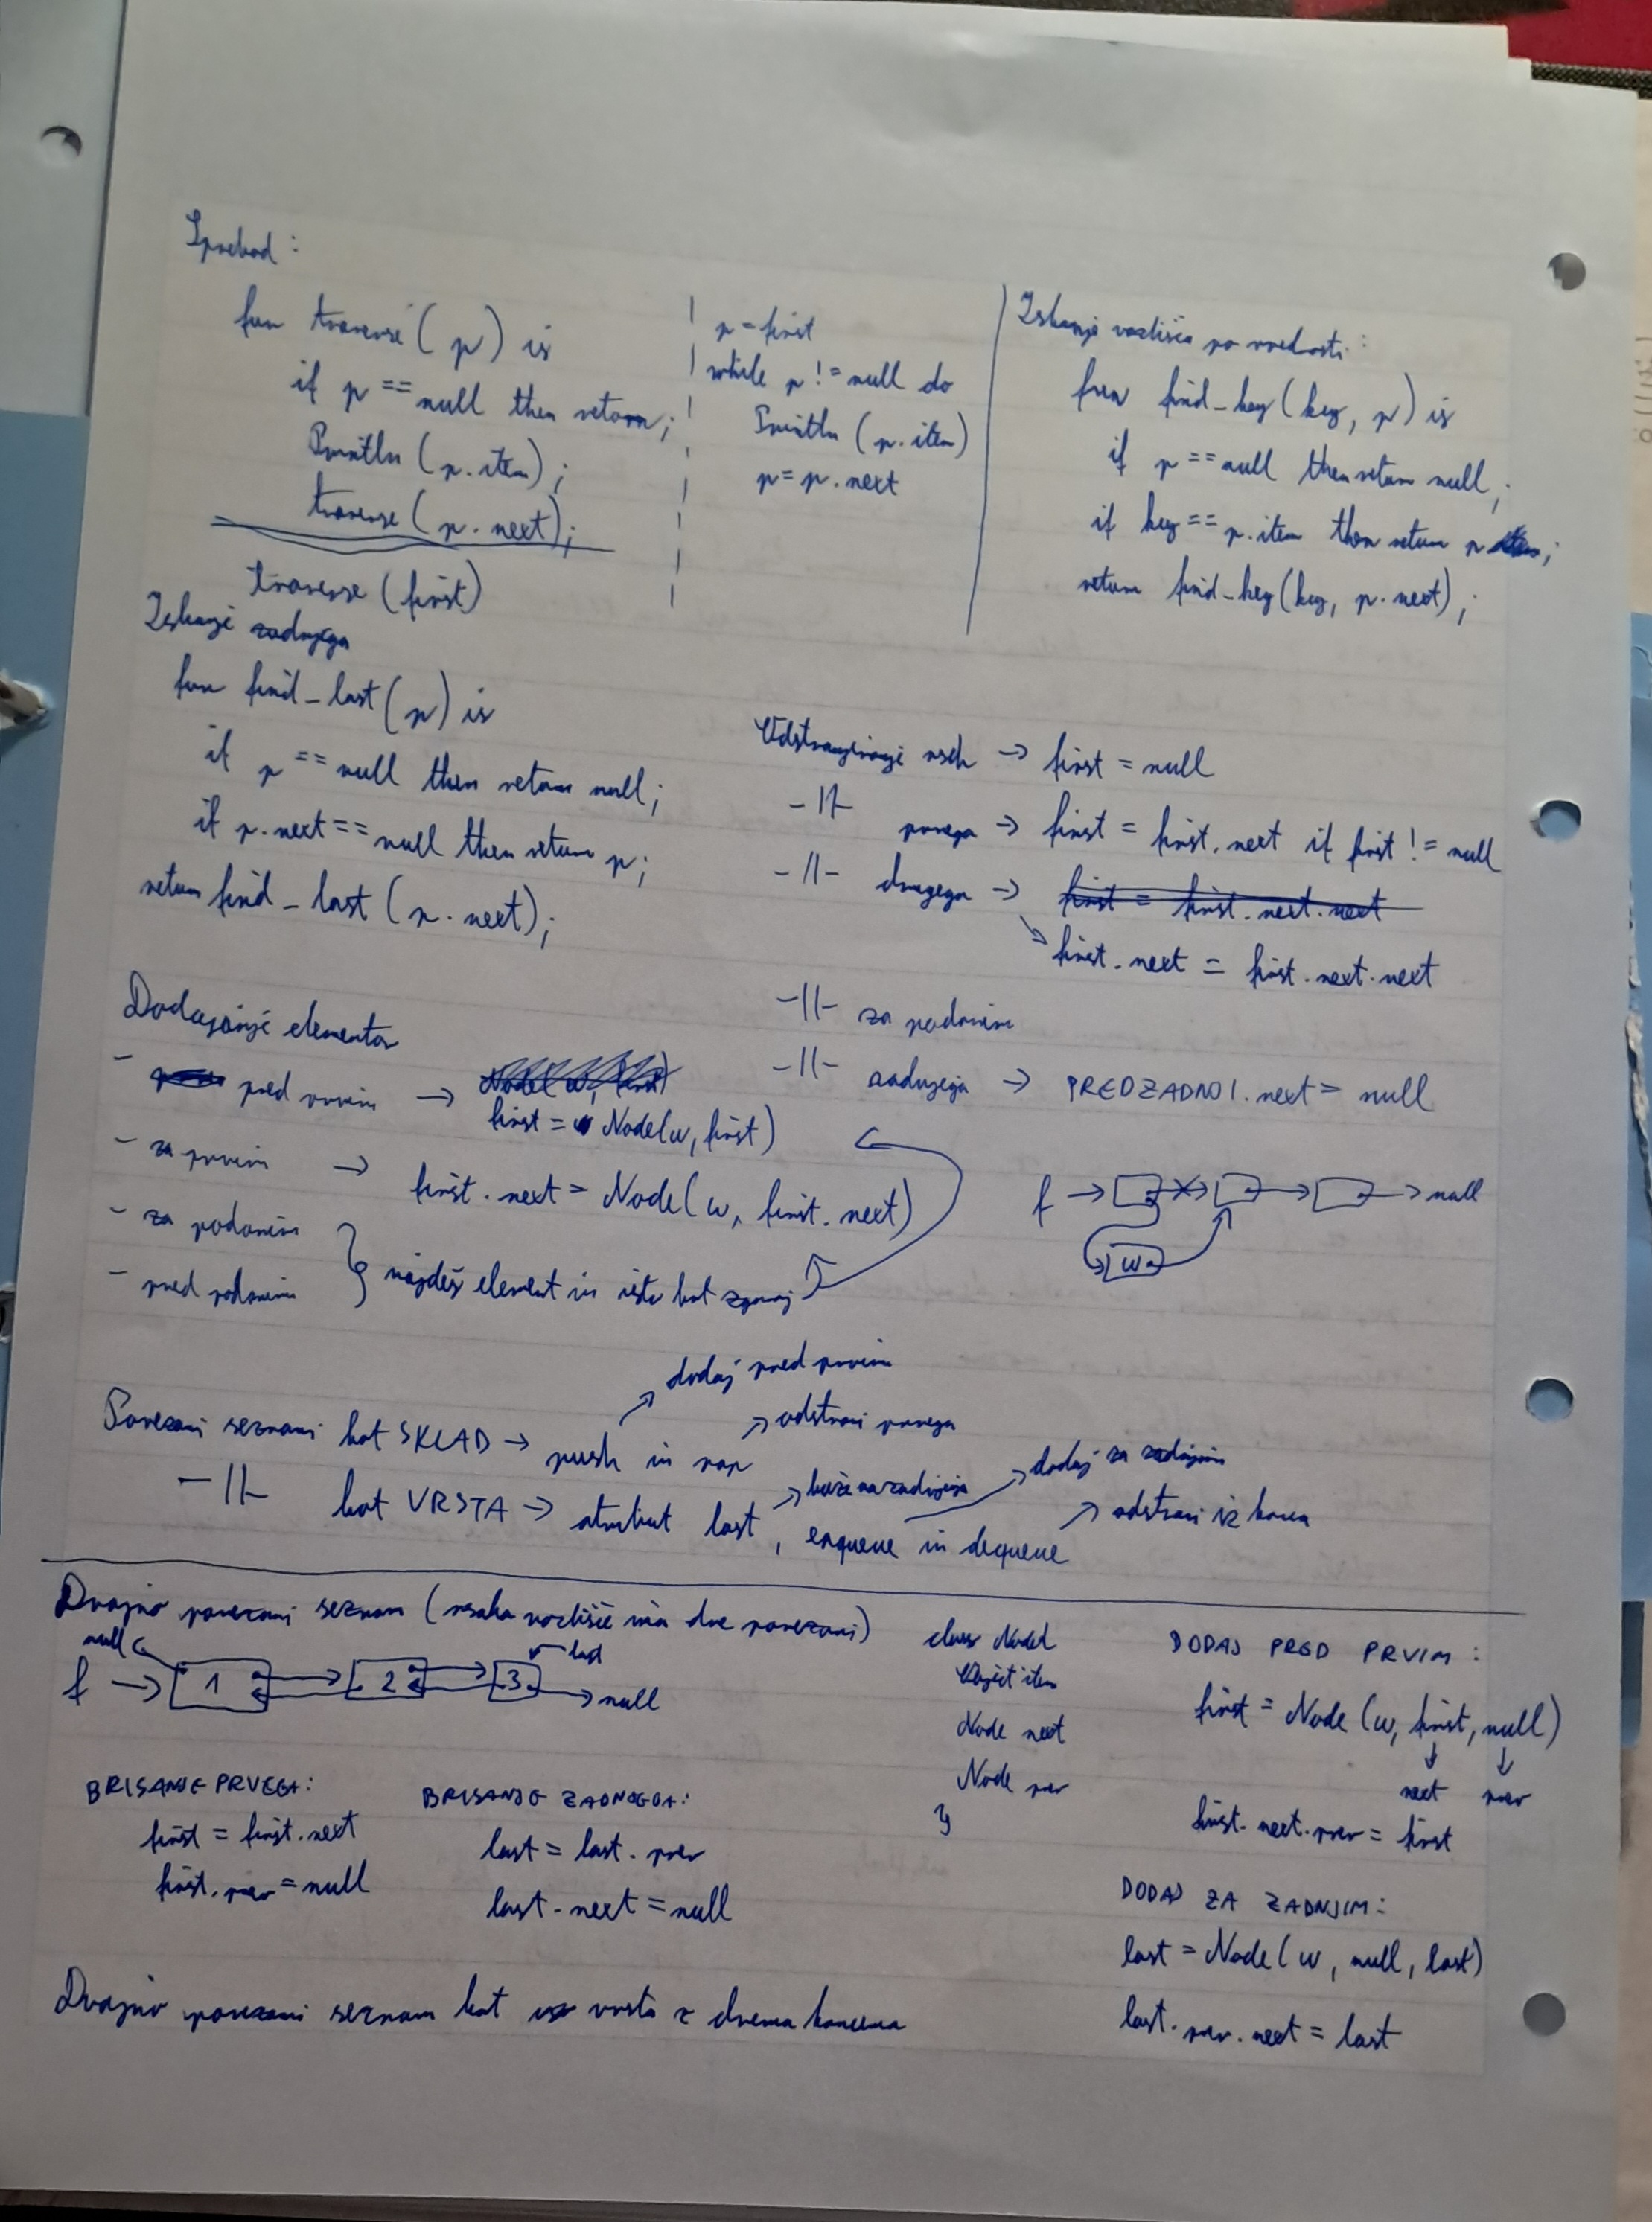 Sprehod:
fun traverse(p) is
if p == null then return;
Println(p.item);
traverse(p.next);
traverse(first)
p = first
while p != null do
Println(p.item)
p = p.next
Iskanje vozlišča po vrednosti:
fun find_key(key, p) is
if p == null then return null;
if key == p.item then return p;
return find_key(key, p.next);
Iskanje zadnjega
fun find_last(p) is
if p == null then return null;
if p.next == null then return p;
return find_last(p.next);
Odstranjevanje vseh → first = null
-||- prvega → first = first.next if first != null
-||- drugega → first = first.next.next
first.next = first.next.next
-||- za podanim
-||- zadnjega → PREDZADNJI.next = null
Dodajanje elementov
- pred prvim → Node(w, first)
first = Node(w, first)
- za prvim → first.next = Node(w, first.next)
- za podanim
- pred podanim
najdeš element in isto kot zgoraj
f → → null
w
Povezani seznami kot SKLAD → push in pop
dodaj pred prvim
odstrani prvega
-||- kot VRSTA → atribut last, enqueue in dequeue
kaže na zadnjega
dodaj za zadnjim
odstrani iz konca
Dvojno povezani seznam (vsako vozlišče ima dve povezavi)
null
f → 1 2 3 → null
last
class Node{
Object item
Node next
Node prev
}
DODAJ PRED PRVIM:
first = Node(w, first, null)
next prev
first.next.prev = first
BRISANJE PRVEGA:
first = first.next
first.prev = null
BRISANJE ZADNJEGA:
last = last.prev
last.next = null
DODAJ ZA ZADNJIM:
last = Node(w, null, last)
last.prev.next = last
Dvojno povezani seznam kot vrsta z dvema koncema